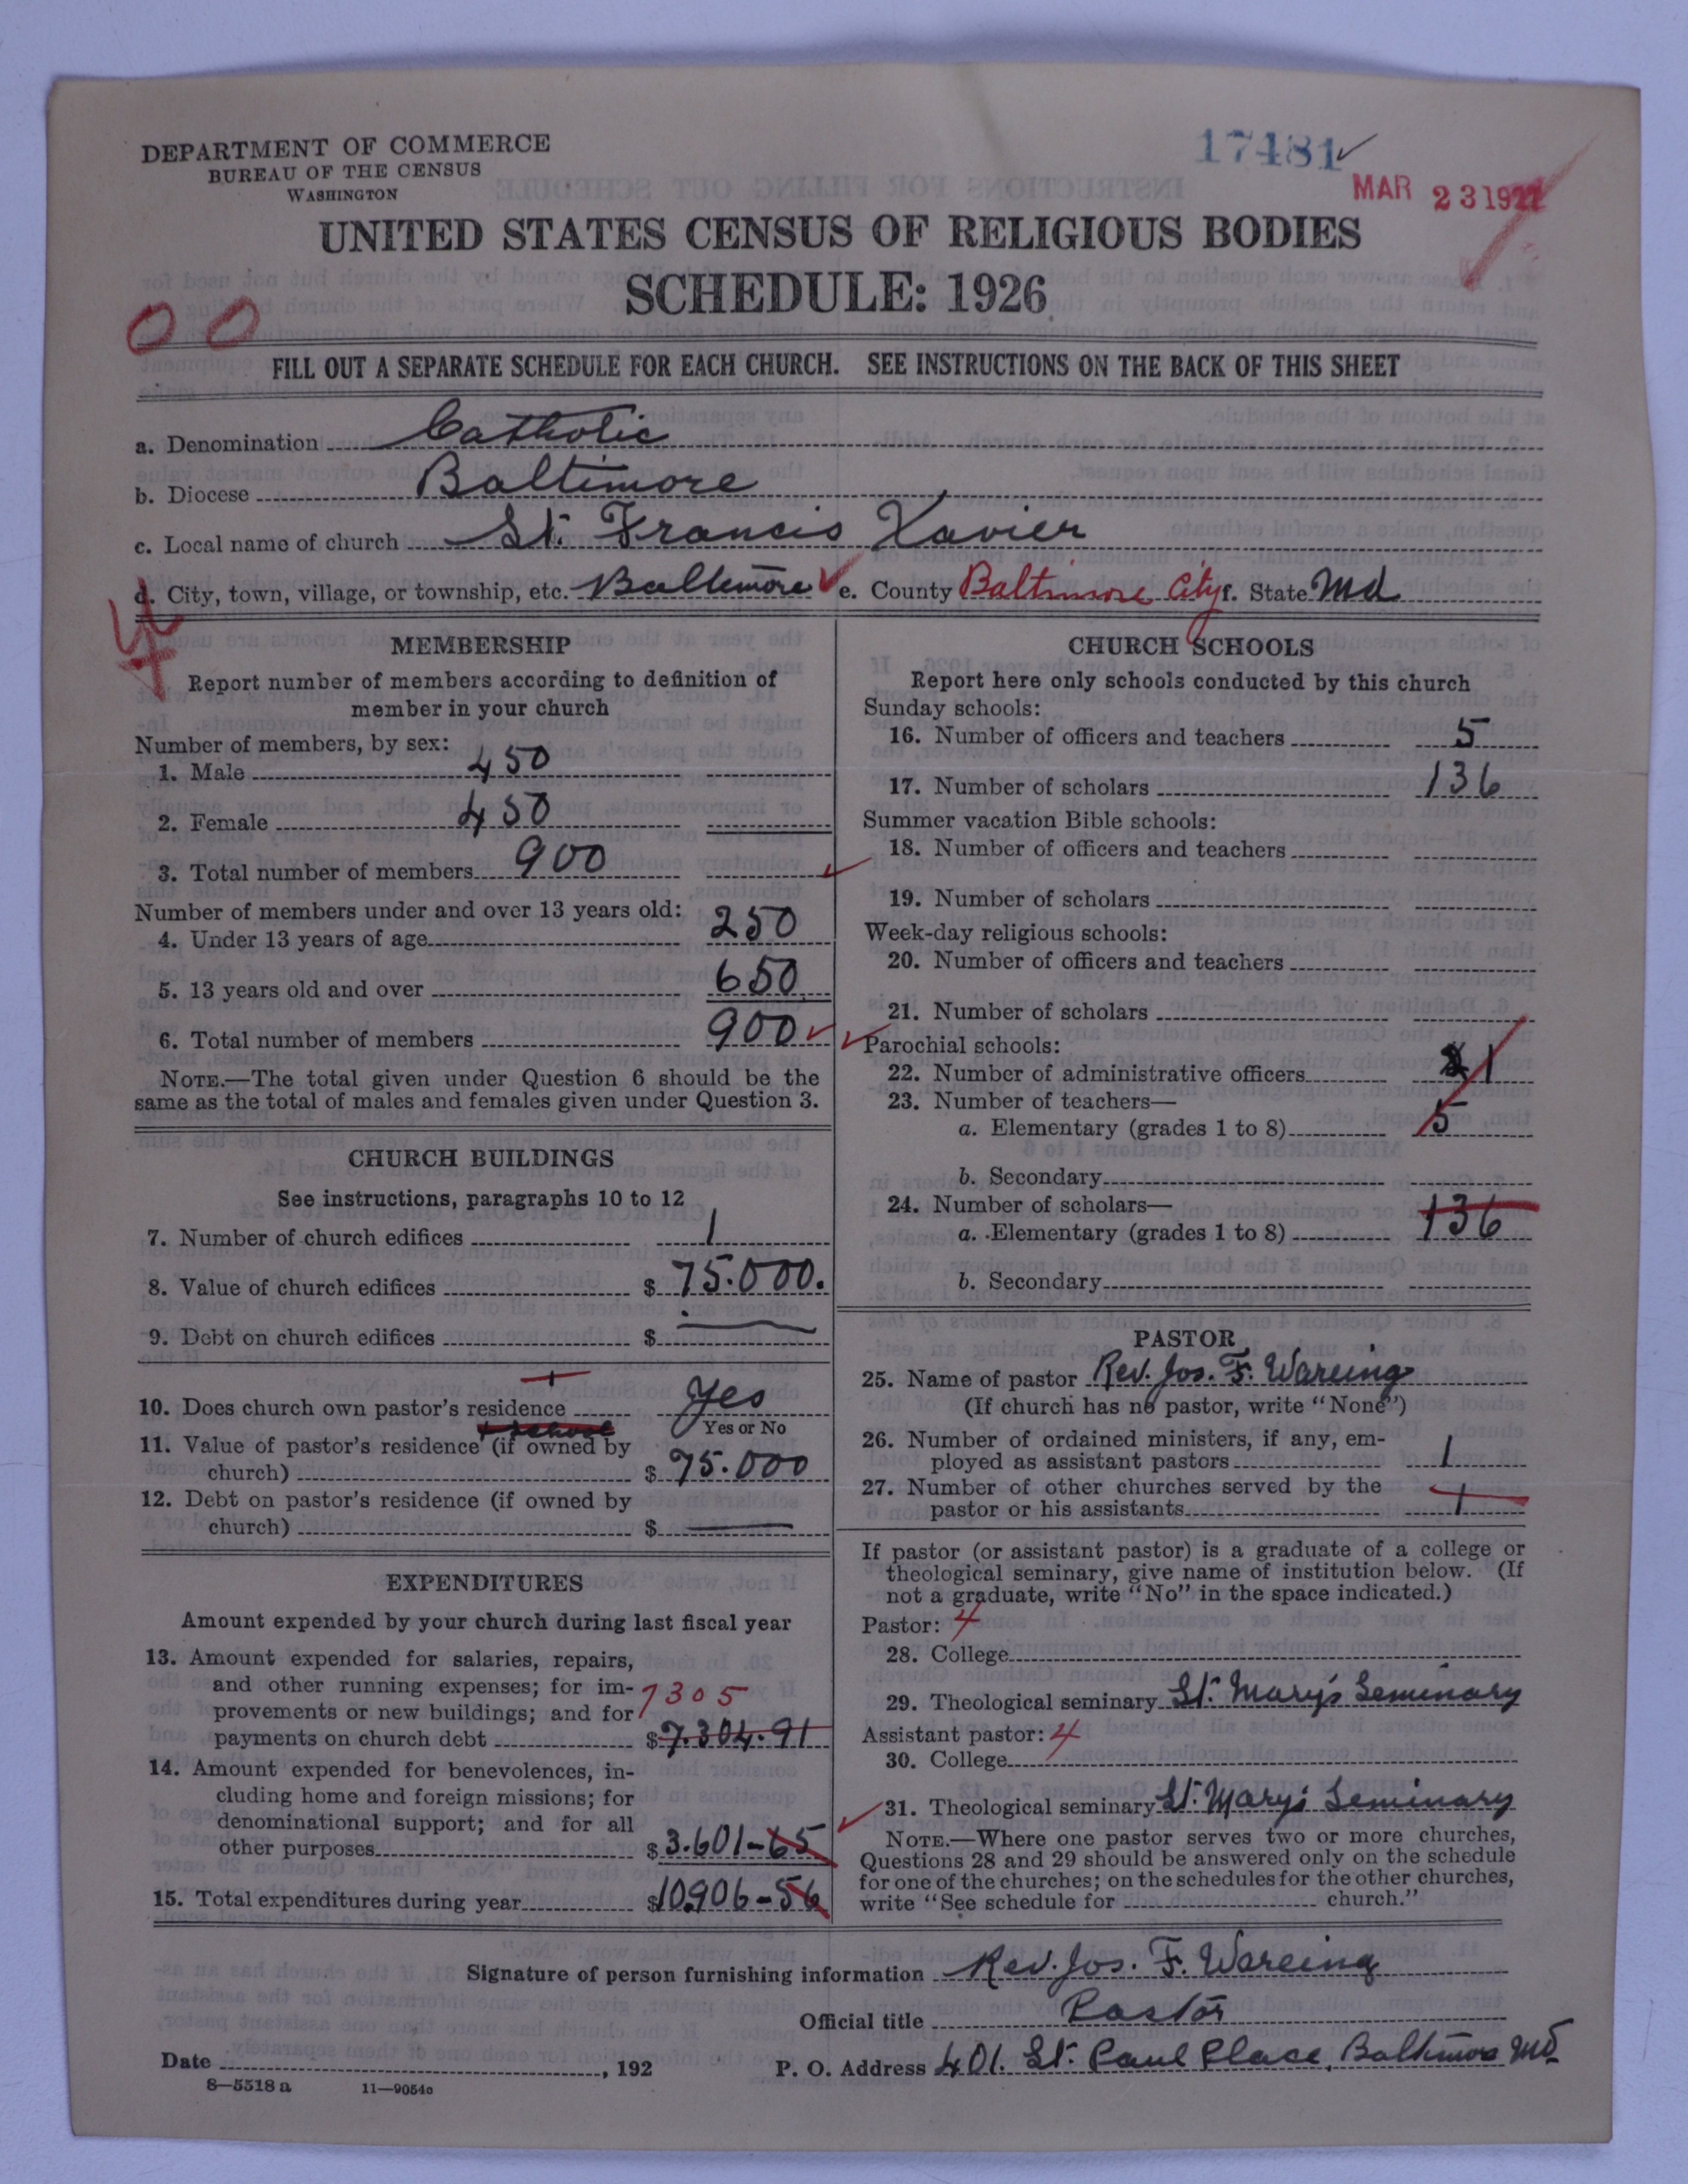 DEPARTMENT OF COMMERCE
BUREAU OF THE CENSUS
WASHINGTON
17481
MAR 23 1927
UNITED STATES CENSUS OF RELIGIOUS BODIES
SCHEDULE: 1926
00
FILL OUT A SEPARATE SCHEDULE FOR EACH CHURCH. SEE INSTRUCTIONS ON THE BACK OF THIS SHEET
a. Denomination Catholic
b. Diocese Baltimore
c. Local name of church St. Francis Xavier
d. City, town, village, or township, etc. Baltimore e. County Baltimore City f. State Md
MEMBERSHIP
Report number of members according to definition of
member in your church
Number of members, by sex:
1. Male 450
2. Female 450
3. Total number of members 900
Number of members under and over 13 years old:
4. Under 13 years of age 250
5. 13 years old and over 650
6. Total number of members 900
NOTE.—The total given under Question 6 should be the
same as the total of males and females given under Question 3.
CHURCH BUILDINGS
See instructions, paragraphs 10 to 12
7. Number of church edifices 1
8. Value of church edifices $ 75.000.
9. Debt on church edifices $
10. Does church own pastor's residence Yes
Yes or No
+ school
11. Value of pastor's residence (if owned by
church) $ 75.000
12. Debt on pastor's residence (if owned by
church) $
EXPENDITURES
Amount expended by your church during last fiscal year
13. Amount expended for salaries, repairs,
and other running expenses; for im-
provements or new buildings; and for
7305
payments on church debt $ 7.304.91
14. Amount expended for benevolences, in-
cluding home and foreign missions; for
denominational support; and for all
other purposes $ 3.601-65
15. Total expenditures during year $ 10.906-56
CHURCH SCHOOLS
Report here only schools conducted by this church
Sunday schools:
16. Number of officers and teachers 5
17. Number of scholars 136
Summer vacation Bible schools:
18. Number of officers and teachers
19. Number of scholars
Week-day religious schools:
20. Number of officers and teachers
21. Number of scholars
Parochial schools:
22. Number of administrative officers 1
23. Number of teachers—
a. Elementary (grades 1 to 8) 5
b. Secondary
24. Number of scholars—
a. Elementary (grades 1 to 8) 136
b. Secondary
PASTOR
25. Name of pastor Rev. Jos. F. Wareing
(If church has no pastor, write "None")
26. Number of ordained ministers, if any, em-
ployed as assistant pastors 1
27. Number of other churches served by the
pastor or his assistants 1
If pastor (or assistant pastor) is a graduate of a college or
theological seminary, give name of institution below. (If
not a graduate, write "No" in the space indicated.)
Pastor: 4
28. College
29. Theological seminary St. Mary's Seminary
Assistant pastor: 4
30. College
31. Theological seminary St. Mary's Seminary
NOTE.—Where one pastor serves two or more churches,
Questions 28 and 29 should be answered only on the schedule
for one of the churches; on the schedules for the other churches,
write "See schedule for church."
Signature of person furnishing information Rev. Jos. F. Wareing
Official title Pastor
Date , 192 P. O. Address 401. St. Paul Place, Baltimore Md
8—5518 a 11—9054a